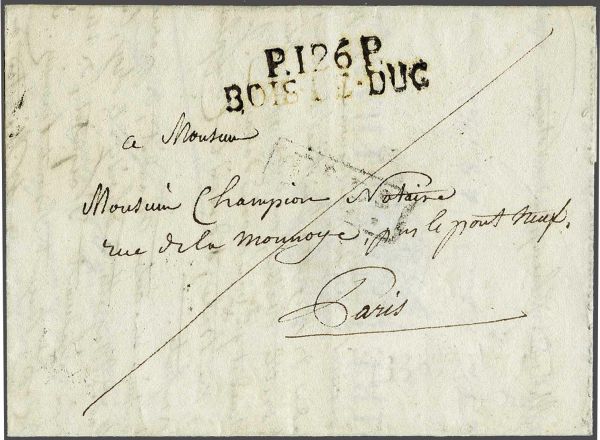 P.126P.
BOIS-LE-DUC
a Monsieur
Monsieur Champion Notaire
rue de la Monnoye, près le pont neuf.
Paris